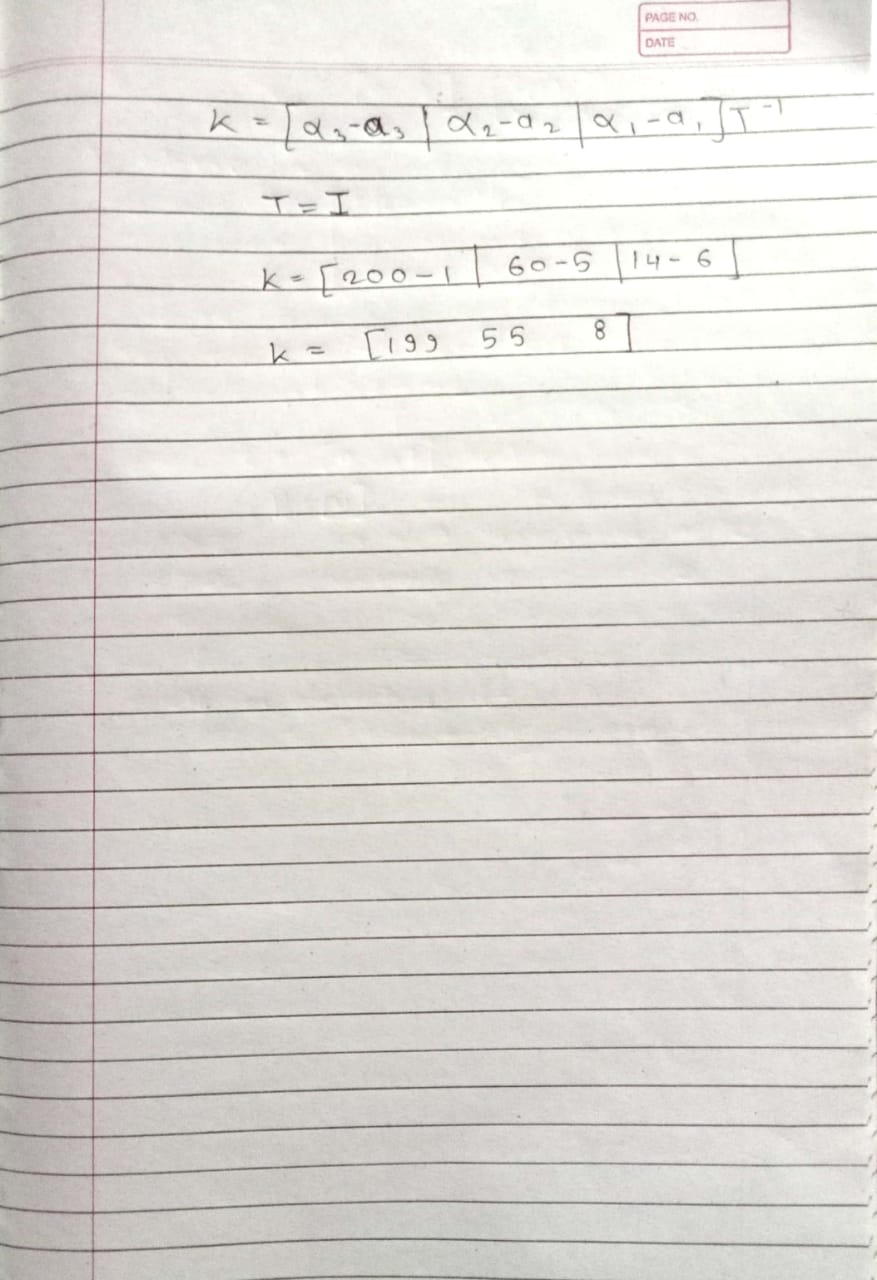 PAGE NO.
DATE
K = [α₃-a₃ | α₂-a₂ | α₁-a₁] T⁻¹
T = I
K = [200-1 | 60-5 | 14-6]
K = [199 55 8]